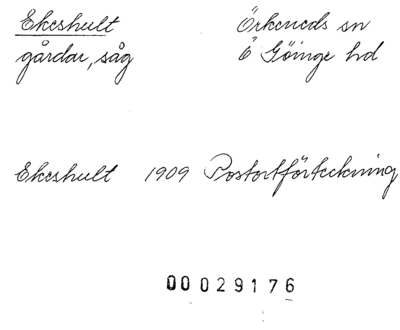 Ekeshult Örkeneds sn
gårdar, såg Ö Göinge hd
Ekeshult 1909 Postortförteckning
00029176